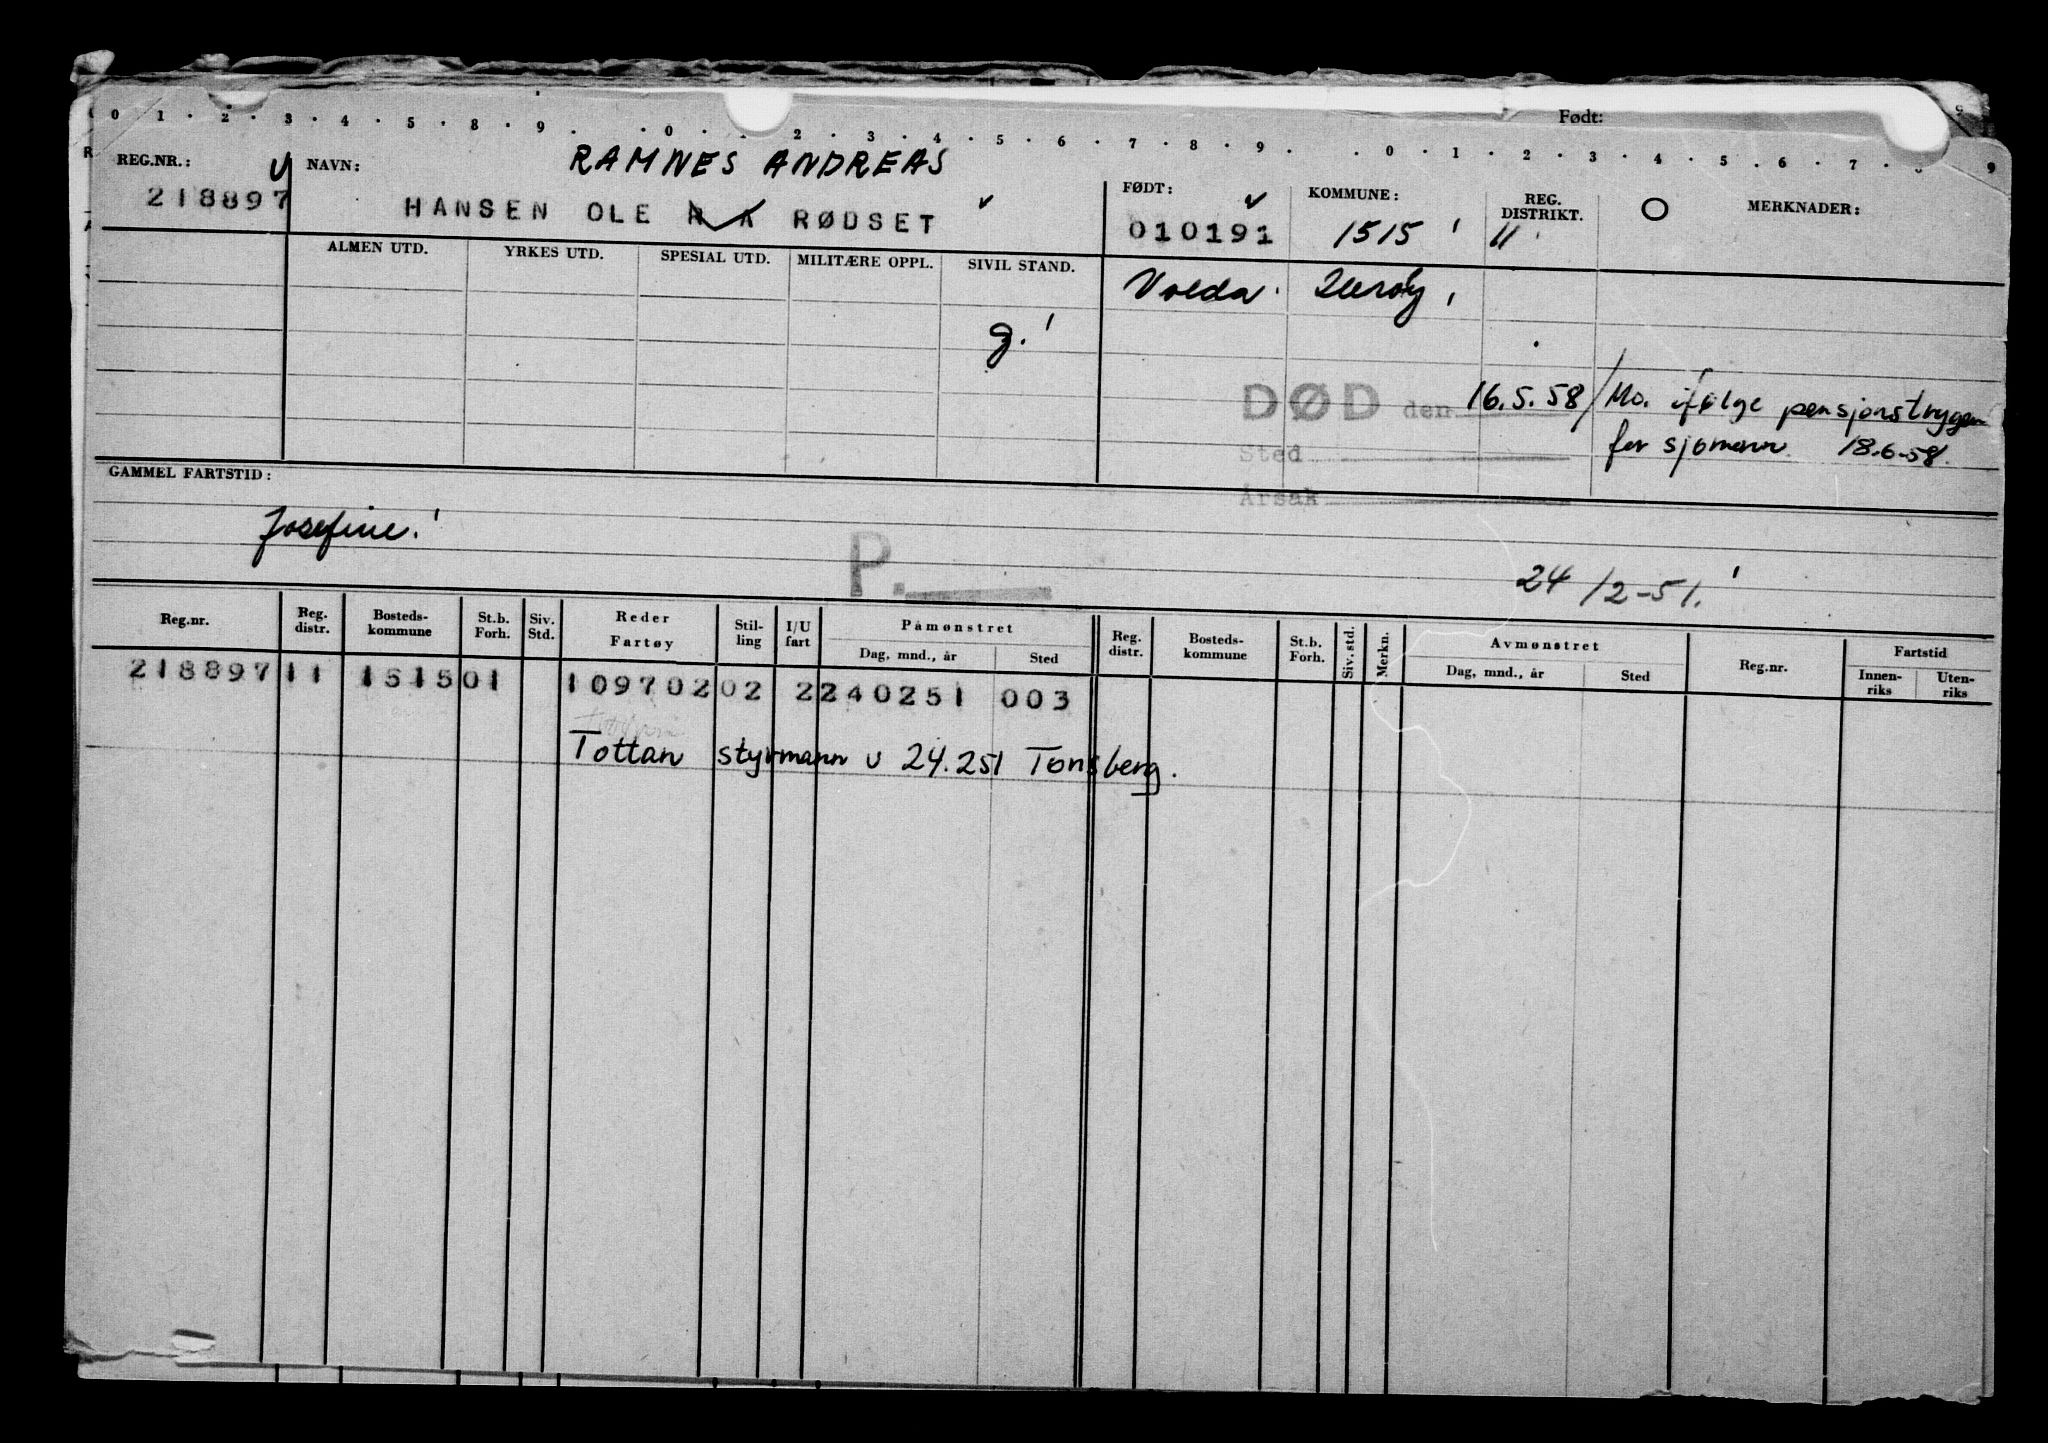 0 1 2 3 4 5 8 9 0 2 3 4 5 6 7 8 9 0 1 2 3 4 5 6 7 9
Født:
REG.NR.: NAVN: RAMNES ANDREAS FØDT: KOMMUNE: REG. DISTRIKT. O MERKNADER:
218897 HANSEN OLE R A RØDSET 010191 1515 11
ALMEN UTD. YRKES UTD. SPESIAL UTD. MILITÆRE OPPL. SIVIL STAND. Volda
g.
DØD den 16.5.58 / Mo. ifølge pensjonstrygden
Sted for sjømenn 18.6-58.
Årsak
GAMMEL FARTSTID:
Josefine.
P.
24/2-51.
Reg.nr. Reg. distr. Bosteds-kommune St.b. Forh. Siv. Std. Reder Fartøy Stil-ling I/U fart Påmønstret Dag, mnd., år Sted Reg. distr. Bosteds-kommune St.b. Forh. Siv. std. Merkn. Avmønstret Dag, mnd., år Sted Reg.nr. Fartstid Innen-riks Uten-riks
218897 11 1515 01 109702 02 2 240251 003
Tottan styrmann u 24.251 Tønsberg.